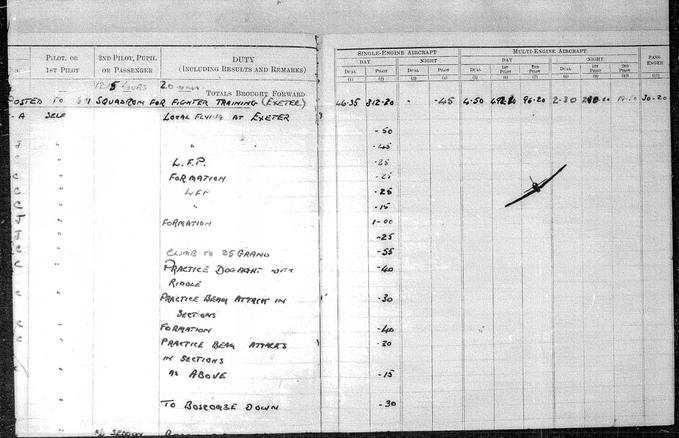 SINGLE-ENGINE AIRCRAFT MULTI-ENGINE AIRCRAFT
PILOT, OR 1ST PILOT 2ND PILOT, PUPIL OR PASSENGER DUTY (INCLUDING RESULTS AND REMARKS) DAY NIGHT DAY NIGHT PASS-ENGER
DUAL PILOT DUAL PILOT DUAL 1ST PILOT 2ND PILOT DUAL 1ST PILOT 2ND PILOT
(1) (2) (3) (4) (5) (6) (7) (8) (9) (10) (11)
1215 HOURS 20
TOTALS BROUGHT FORWARD
POSTED TO SQUADRON FOR FIGHTER TRAINING (EXETER) 46.35 312.20 - .45 4.50 96.20 2.30 30.20
A SELF LOCAL FLYING AT EXETER -50
J " " .45
" L.F.P. .25
C " FORMATION .25
C " LFP .25
C " " .15
J " FORMATION 1-00
J " -25
C " CLIMB TO 25 GRAND -55
C " PRACTICE DOGFIGHT WITH -40
RIDDLE
" PRACTICE BEAM ATTACK IN -30
SECTIONS
C " FORMATION -40
C " PRACTICE BEAM ATTACKS .30
IN SECTIONS
" AS ABOVE -15
" TO BOSCOMBE DOWN -30
SEDDON